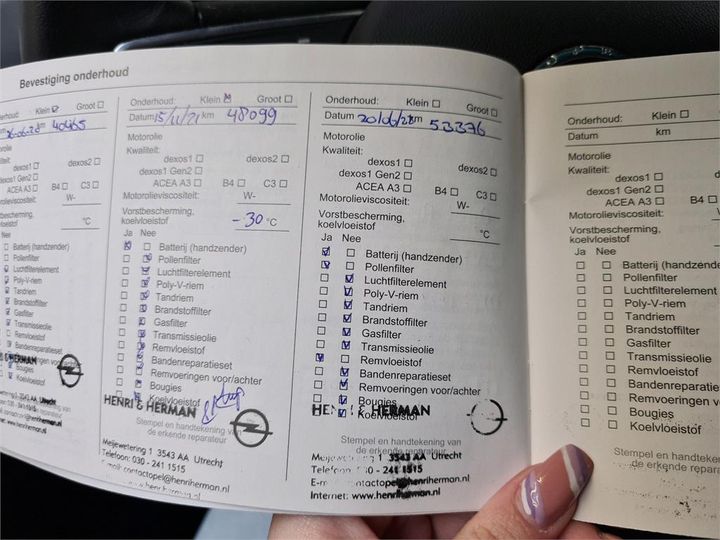 Bevestiging onderhoud
houd: Klein Groot
40465
liteit:
dexos1 dexos2
dexos1 Gen2
ACEA A3 B4 C3
riolieviscositeit: W-
stbescherming,
elvloeistof °C
Nee
Batterij (handzender)
Pollenfilter
Luchtfilterelement
Poly-V-riem
Tandriem
Brandstoffilter
Gasfilter
Transmissieolie
Remvloeistof
Bandenreparatieset
Remvoeringen voor/achter
Bougies
Koelvloeistof
& HERMAN
3543 AA Utrecht
www.henriherman.nl
Onderhoud: Klein Groot
Datum 15/11/21 km 48099
Motorolie
Kwaliteit:
dexos1 dexos2
dexos1 Gen2
ACEA A3 B4 C3
Motorolieviscositeit: W-
Vorstbescherming,
koelvloeistof -30 °C
Ja Nee
Batterij (handzender)
Pollenfilter
Luchtfilterelement
Poly-V-riem
Tandriem
Brandstoffilter
Gasfilter
Transmissieolie
Remvloeistof
Bandenreparatieset
Remvoeringen voor/achter
Bougies
Koelvloeistof
HENRI & HERMAN
Stempel en handtekening van
de erkende reparateur
Meijewetering 1 3543 AA Utrecht
Telefoon: 030 - 241 1515
E-mail: contactopel@henriherman.nl
www.henriherman.nl
Onderhoud: Klein Groot
Datum km 53376
Motorolie
Kwaliteit:
dexos1 dexos2
dexos1 Gen2
ACEA A3 B4 C3
Motorolieviscositeit: W-
Vorstbescherming,
koelvloeistof °C
Ja Nee
Batterij (handzender)
Pollenfilter
Luchtfilterelement
Poly-V-riem
Tandriem
Brandstoffilter
Gasfilter
Transmissieolie
Remvloeistof
Bandenreparatieset
Remvoeringen voor/achter
Bougies
Koelvloeistof
HENRI & HERMAN
Stempel en handtekening van
de erkende reparateur
Meijewetering 1 3543 AA Utrecht
Telefoon: 030 - 241 1515
contactopel@henriherman.nl
Internet: www.henriherman.nl
Onderhoud: Klein
Datum km
Motorolie
Kwaliteit:
dexos1
dexos1 Gen2
ACEA A3 B4
Motorolieviscositeit:
Vorstbescherming,
koelvloeistof
Ja Nee
Batterij (handzender
Pollenfilter
Luchtfilterelement
Poly-V-riem
Tandriem
Brandstoffilter
Gasfilter
Transmissieolie
Remvloeistof
Bandenreparatieset
Remvoeringen voor/a
Bougies
Koelvloeistof
Stempel en handtekening
de erkende reparat